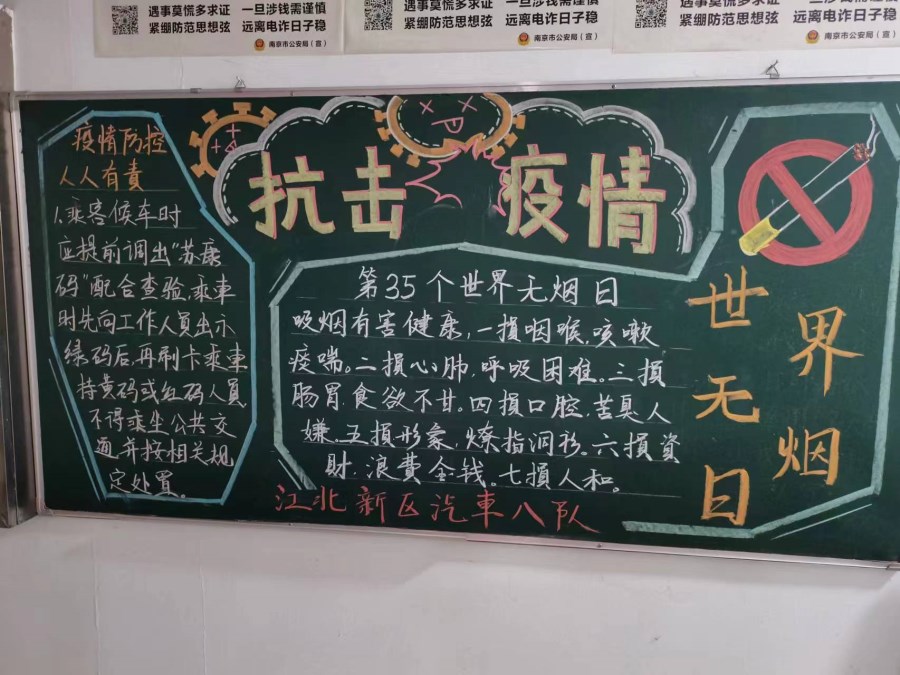 遇事莫慌多求证 一旦涉钱需谨慎
紧绷防范思想弦 远离电诈日子稳
南京市公安局（宣）
遇事莫慌多求证 一旦涉钱需谨慎
紧绷防范思想弦 远离电诈日子稳
南京市公安局（宣）
遇事莫慌多求证 一旦涉钱需谨慎
紧绷防范思想弦 远离电诈日子稳
南京市公安局（宣）
抗击疫情
疫情防控
人人有責
1.乘客候车时
应提前调出“苏康
码”配合查验，乘車
时先向工作人員出示
绿码后，再刷卡乘車
持黄码或红码人員
不得乘坐公共交
通，并按相关规
定处置。
第35个世界无烟日
吸烟有害健康，一損咽喉，咳嗽
痰喘。二損心肺，呼吸困难。三損
肠胃食欲不甘。四損口腔，苦臭人
嫌。五損形象，燎指洞衫。六損資
財，浪費金钱。七損人和。
江北新区汽車八队
世界
无烟
日